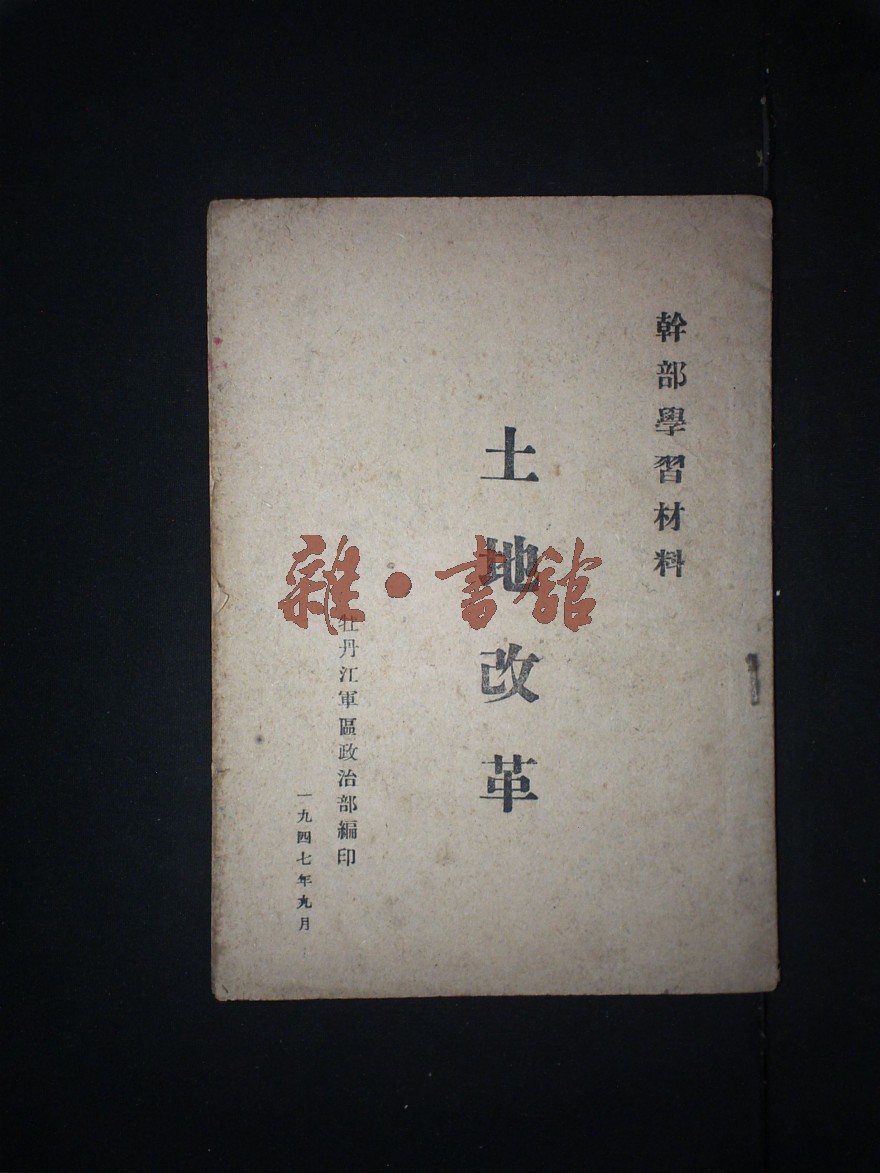 幹部學習材料
土地改革
牡丹江軍區政治部編印
一九四七年九月
雜·書館